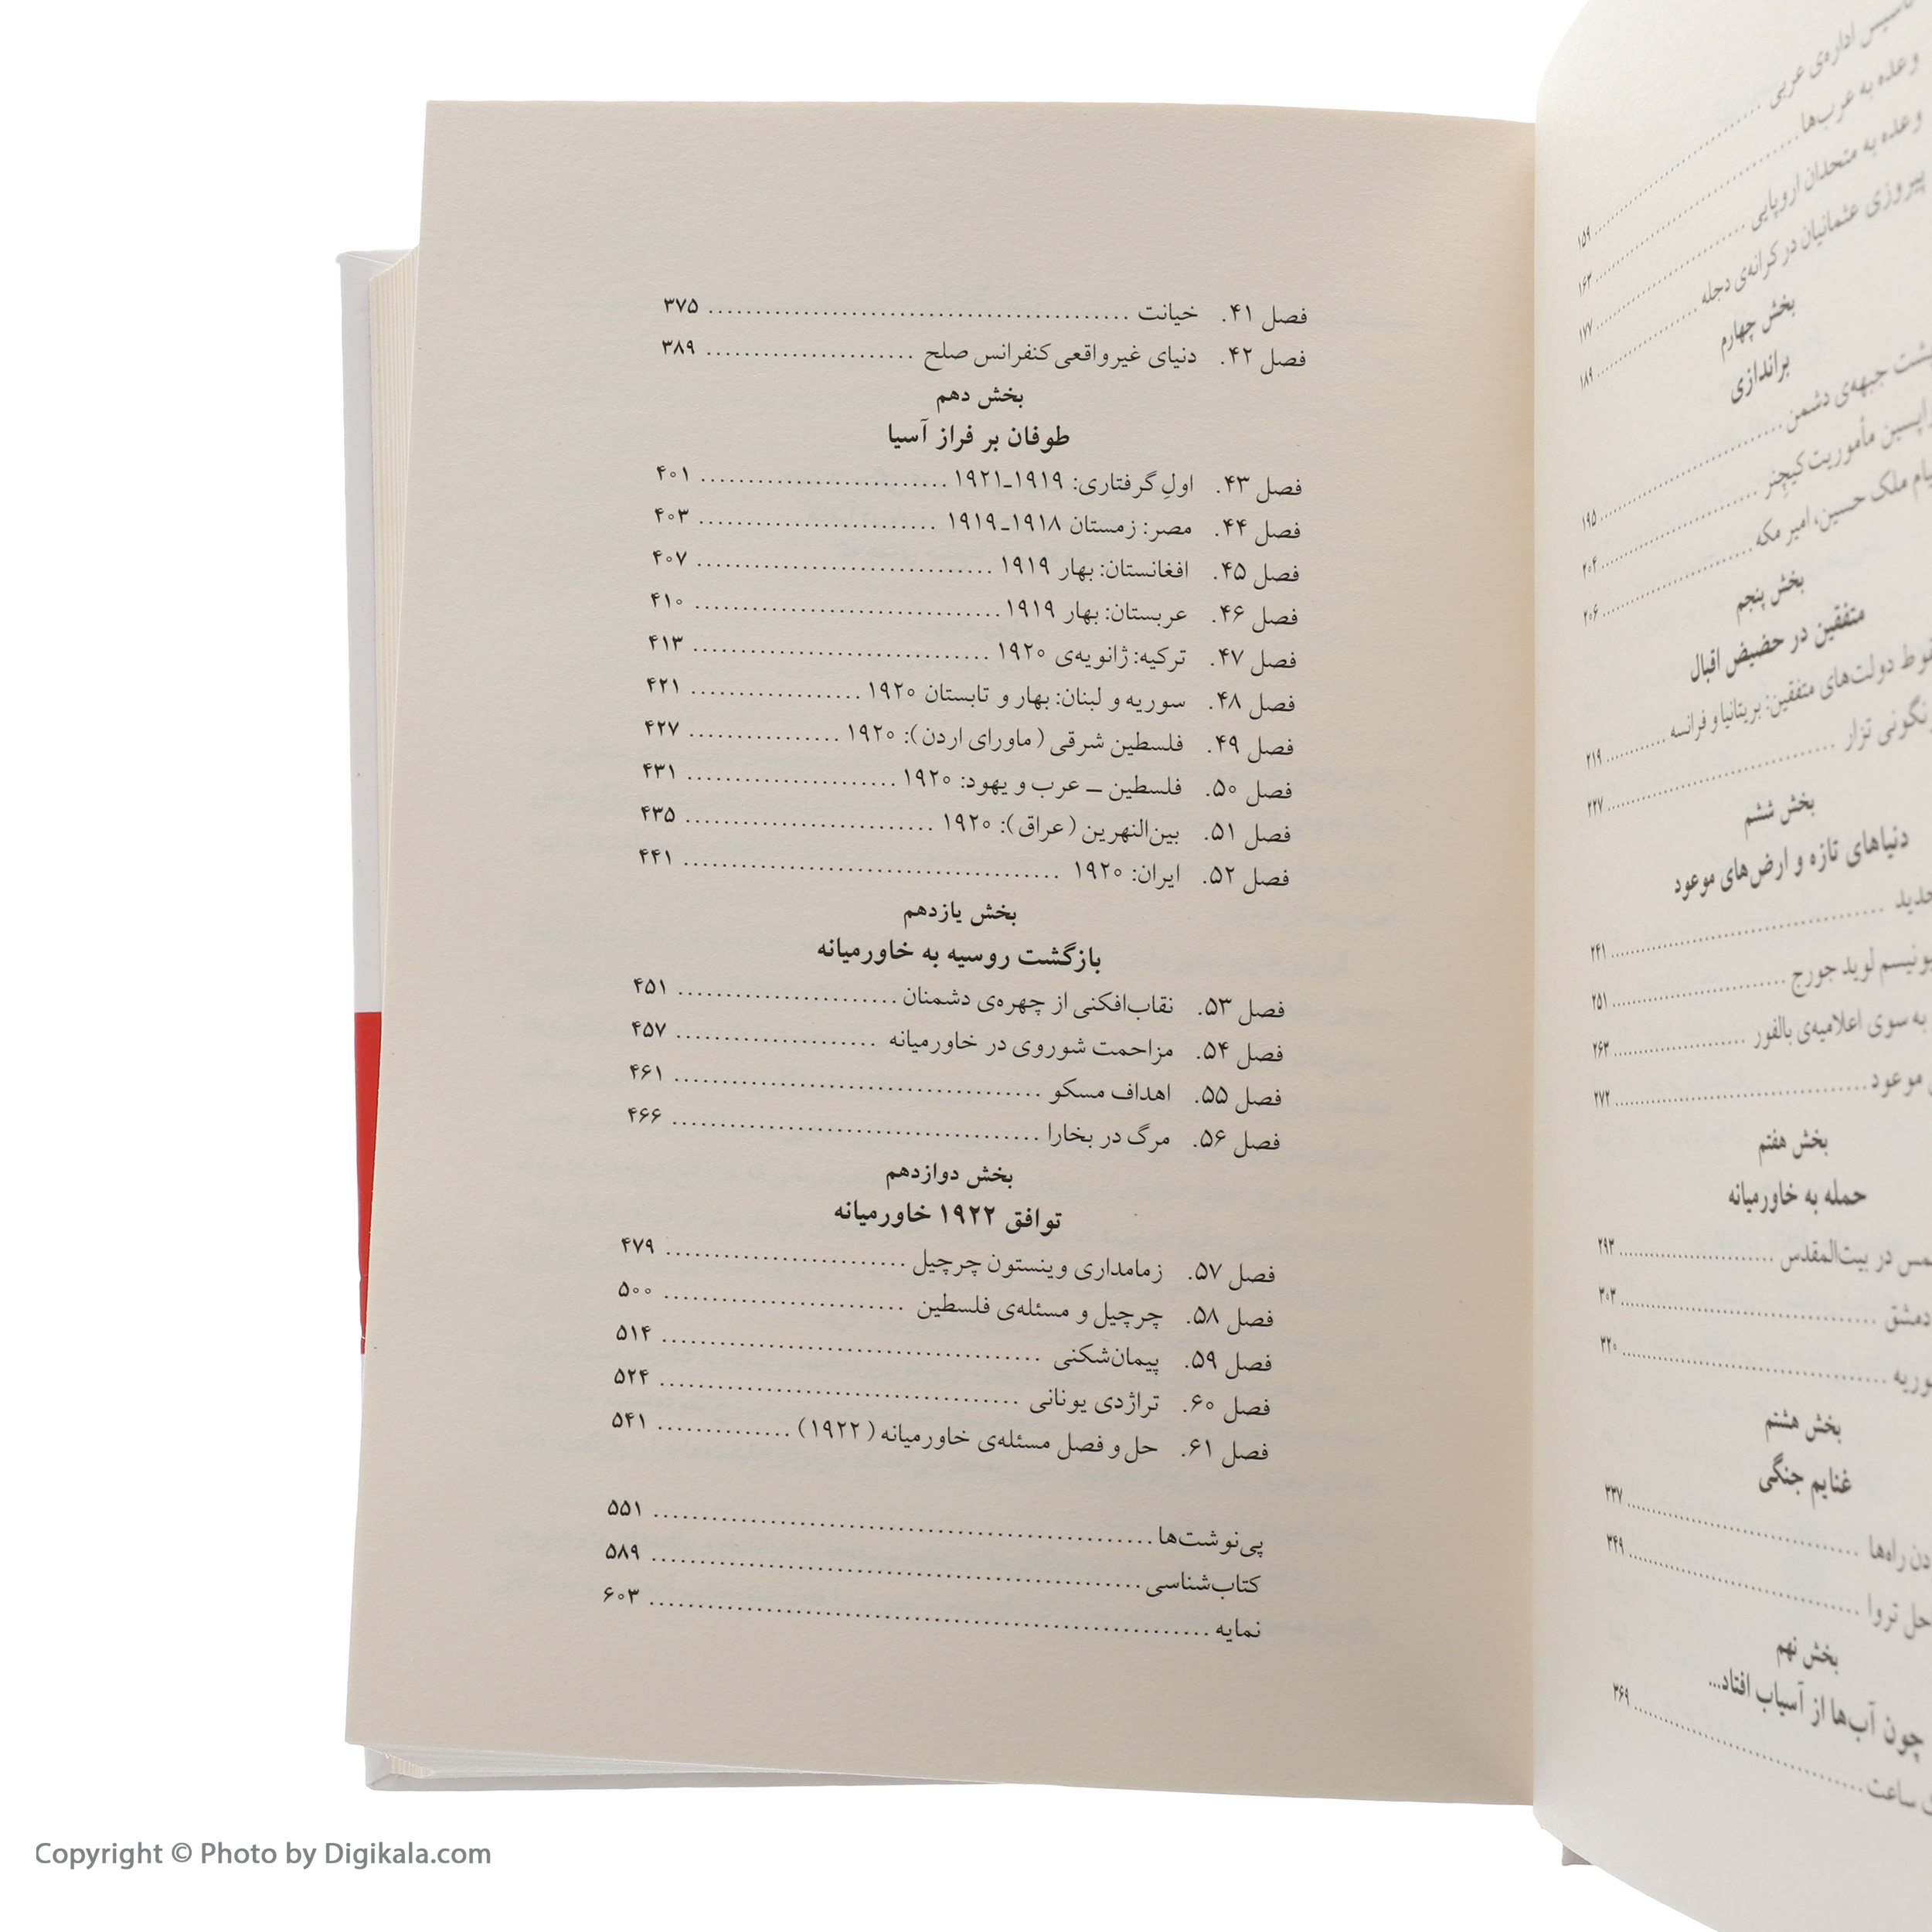 تأسیس اداره‌ی عربی ........ ۱۵۹
وعده به عرب‌ها ........ ۱۶۲
وعده به متحدان اروپایی ........ ۱۷۷
پیروزی عثمانیان در کرانه‌ی دجله ........ ۱۸۹
بخش چهارم
براندازی
پشت جبهه‌ی دشمن ........ ۱۹۵
واپسین مأموریت کیچنر ........ ۲۰۴
ملک حسین، امیر مکه ........ ۲۰۶
بخش پنجم
متفقین در حضیض اقبال
دولت‌های متفقین: بریتانیا و فرانسه ........ ۲۱۹
تزار ........ ۲۲۷
بخش ششم
دنیاهای تازه و ارض‌های موعود
........ ۲۴۱
لوید جورج ........ ۲۵۱
به سوی اعلامیه‌ی بالفور ........ ۲۶۳
موعود ........ ۲۷۲
بخش هفتم
حمله به خاورمیانه
در بیت‌المقدس ........ ۲۹۳
دمشق ........ ۳۰۳
........ ۳۲۰
بخش هشتم
غنایم جنگی
راه‌ها ........ ۳۳۷
تروا ........ ۳۴۹
بخش نهم
چون آب‌ها از آسیاب افتاد...
ساعت ........ ۳۶۹
فصل ۴۱. خیانت ........ ۳۷۵
فصل ۴۲. دنیای غیرواقعی کنفرانس صلح ........ ۳۸۹
بخش دهم
طوفان بر فراز آسیا
فصل ۴۳. اولِ گرفتاری: ۱۹۱۹ـ۱۹۲۱ ........ ۴۰۱
فصل ۴۴. مصر: زمستان ۱۹۱۸ـ۱۹۱۹ ........ ۴۰۳
فصل ۴۵. افغانستان: بهار ۱۹۱۹ ........ ۴۰۷
فصل ۴۶. عربستان: بهار ۱۹۱۹ ........ ۴۱۰
فصل ۴۷. ترکیه: ژانویه‌ی ۱۹۲۰ ........ ۴۱۳
فصل ۴۸. سوریه و لبنان: بهار و تابستان ۱۹۲۰ ........ ۴۲۱
فصل ۴۹. فلسطین شرقی (ماورای اردن): ۱۹۲۰ ........ ۴۲۷
فصل ۵۰. فلسطین ــ عرب و یهود: ۱۹۲۰ ........ ۴۳۱
فصل ۵۱. بین‌النهرین (عراق): ۱۹۲۰ ........ ۴۳۵
فصل ۵۲. ایران: ۱۹۲۰ ........ ۴۴۱
بخش یازدهم
بازگشت روسیه به خاورمیانه
فصل ۵۳. نقاب‌افکنی از چهره‌ی دشمنان ........ ۴۵۱
فصل ۵۴. مزاحمت شوروی در خاورمیانه ........ ۴۵۷
فصل ۵۵. اهداف مسکو ........ ۴۶۱
فصل ۵۶. مرگ در بخارا ........ ۴۶۶
بخش دوازدهم
توافق ۱۹۲۲ خاورمیانه
فصل ۵۷. زمامداری وینستون چرچیل ........ ۴۷۹
فصل ۵۸. چرچیل و مسئله‌ی فلسطین ........ ۵۰۰
فصل ۵۹. پیمان‌شکنی ........ ۵۱۴
فصل ۶۰. تراژدی یونانی ........ ۵۲۴
فصل ۶۱. حل و فصل مسئله‌ی خاورمیانه (۱۹۲۲) ........ ۵۴۱
پی‌نوشت‌ها ........ ۵۵۱
کتاب‌شناسی ........ ۵۸۹
نمایه ........ ۶۰۳
Copyright © Photo by Digikala.com